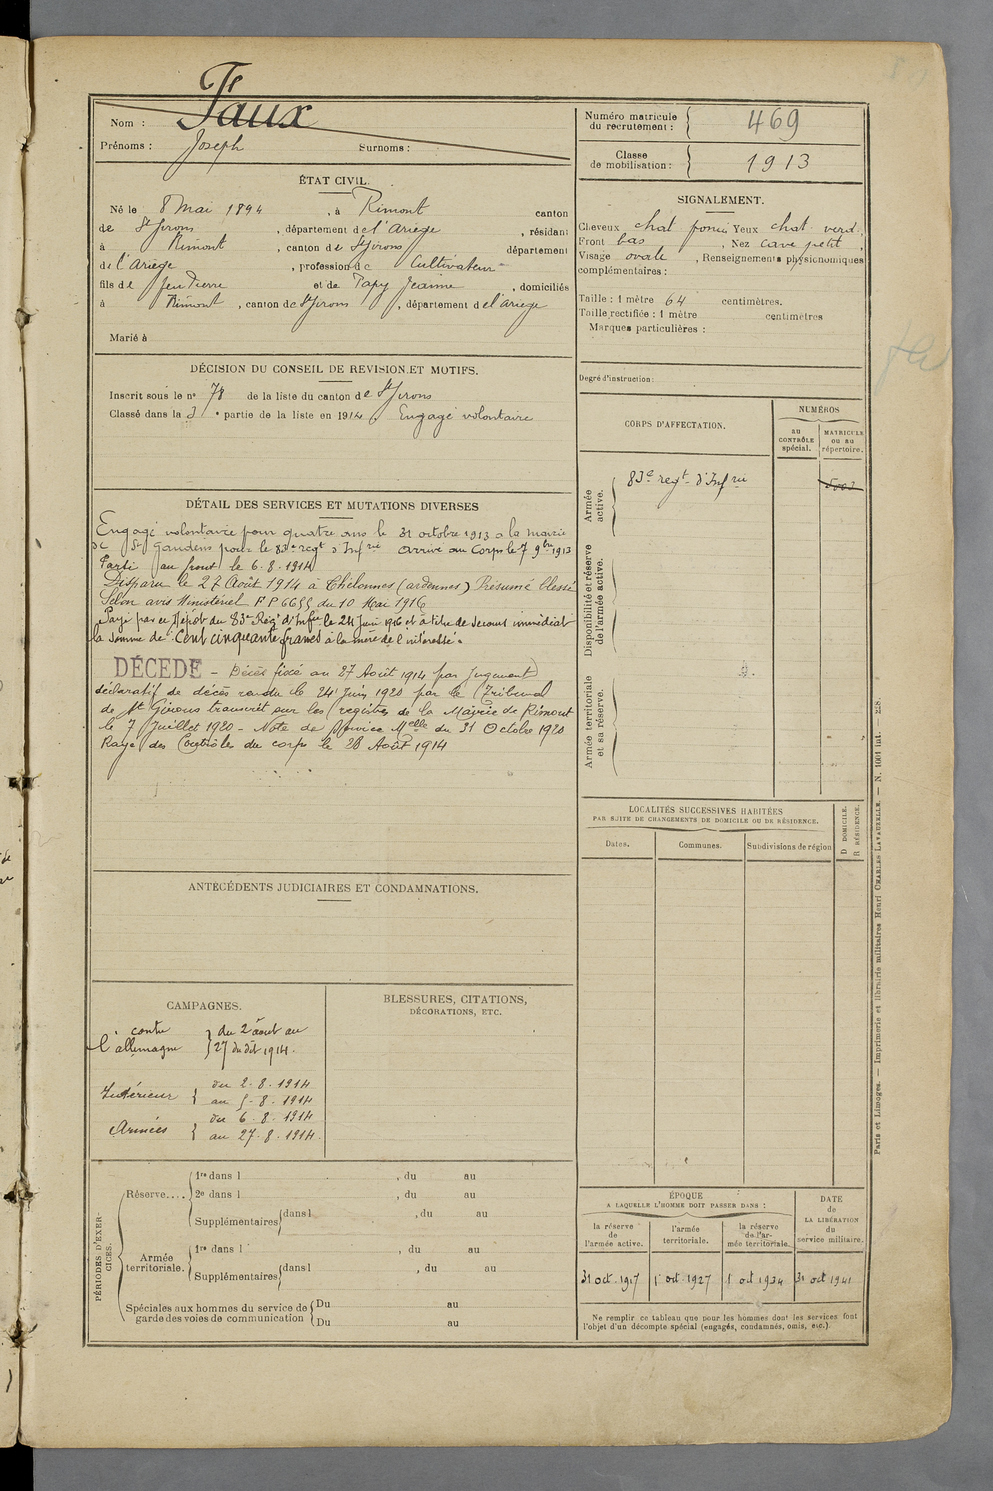 Nom : Faux
Prénoms : Joseph Surnoms :
Numéro matricule du recrutement : 469
Classe de mobilisation : 1913
ÉTAT CIVIL.
Né le 8 Mai 1894, à Rimont canton
de St Girons, département de l'Ariège, résidant
à Rimont, canton de St Girons département
de l'Ariège, profession de Cultivateur
fils de Jean Pierre et de Papy Jeanne, domiciliés
à Rimont, canton de St Girons, département de l'Ariège
Marié à
SIGNALEMENT.
Cheveux chat foncé Yeux chat verd.
Front bas, Nez cave petit,
Visage ovale, Renseignements physionomiques
complémentaires :
Taille : 1 mètre 64 centimètres.
Taille rectifiée : 1 mètre centimètres
Marques particulières :
Degré d'instruction :
DÉCISION DU CONSEIL DE REVISION ET MOTIFS.
Inscrit sous le n° 78 de la liste du canton de St Girons
Classé dans la 3e partie de la liste en 1914 Engagé volontaire
DÉTAIL DES SERVICES ET MUTATIONS DIVERSES
Engagé volontaire pour quatre ans le 31 octobre 1913 a la mairie
de St Gaudens pour le 83e regt d'Infrie arrive au Corps le 7 9bre 1913
Parti au front le 6.8.1914
Disparu le 27 Août 1914 à Thélonnes (ardennes) Présumé blessé
Selon avis Ministériel F P 6655 du 10 Mai 1916
Payé par le Dépôt du 83e Rég. d'Infie le 24 Juin 1916 et à titre de secours immédiat
la somme de Cent cinquante francs à la mère de l'intéressé.
DÉCEDE - Décès fixé au 27 Août 1914 par Jugement
déclaratif de décès rendu le 24 Juin 1920 par le Tribunal
de St Girons transcrit sur les registres de la Mairie de Rimont
le 7 Juillet 1920 - Note de Service Melle du 31 Octobre 1920
Rayé des Contrôles du corps le 28 Août 1914
CORPS D'AFFECTATION.
NUMÉROS
au CONTRÔLE spécial.
MATRICULE OU AU répertoire.
Armée active.
83e regt d'Infrie
Disponibilité et réserve de l'armée active.
Armée territoriale et sa réserve.
LOCALITÉS SUCCESSIVES HABITÉES
PAR SUITE DE CHANGEMENTS DE DOMICILE OU DE RÉSIDENCE.
Dates.
Communes.
Subdivisions de région
D DOMICILE.
R RÉSIDENCE.
ANTÉCÉDENTS JUDICIAIRES ET CONDAMNATIONS.
CAMPAGNES.
contre l'allemagne } du 2 août au
27 du dit 1914.
Intérieur { du 2.8.1914
au 5.8.1914
Armées { du 6.8.1914
au 27.8.1914.
BLESSURES, CITATIONS,
DÉCORATIONS, ETC.
PÉRIODES D'EXERCICES.
Réserve....
1re dans l , du au
2e dans l , du au
Supplémentaires dans l , du au
Armée territoriale.
1re dans l , du au
Supplémentaires dans l , du au
Spéciales aux hommes du service de garde des voies de communication
Du au
Du au
ÉPOQUE
A LAQUELLE L'HOMME DOIT PASSER DANS :
la réserve de l'armée active.
l'armée territoriale.
la réserve de l'armée territoriale.
DATE de LA LIBÉRATION du service militaire.
31 oct. 1917
1 oct. 1927
1 oct 1934
31 oct 1941
Ne remplir ce tableau que pour les hommes dont les services font
l'objet d'un décompte spécial (engagés, condamnés, omis, etc.).
Paris et Limoges. — Imprimerie et librairie militaires Henri CHARLES LAVAUZELLE. — N. 1001 int. - 228.